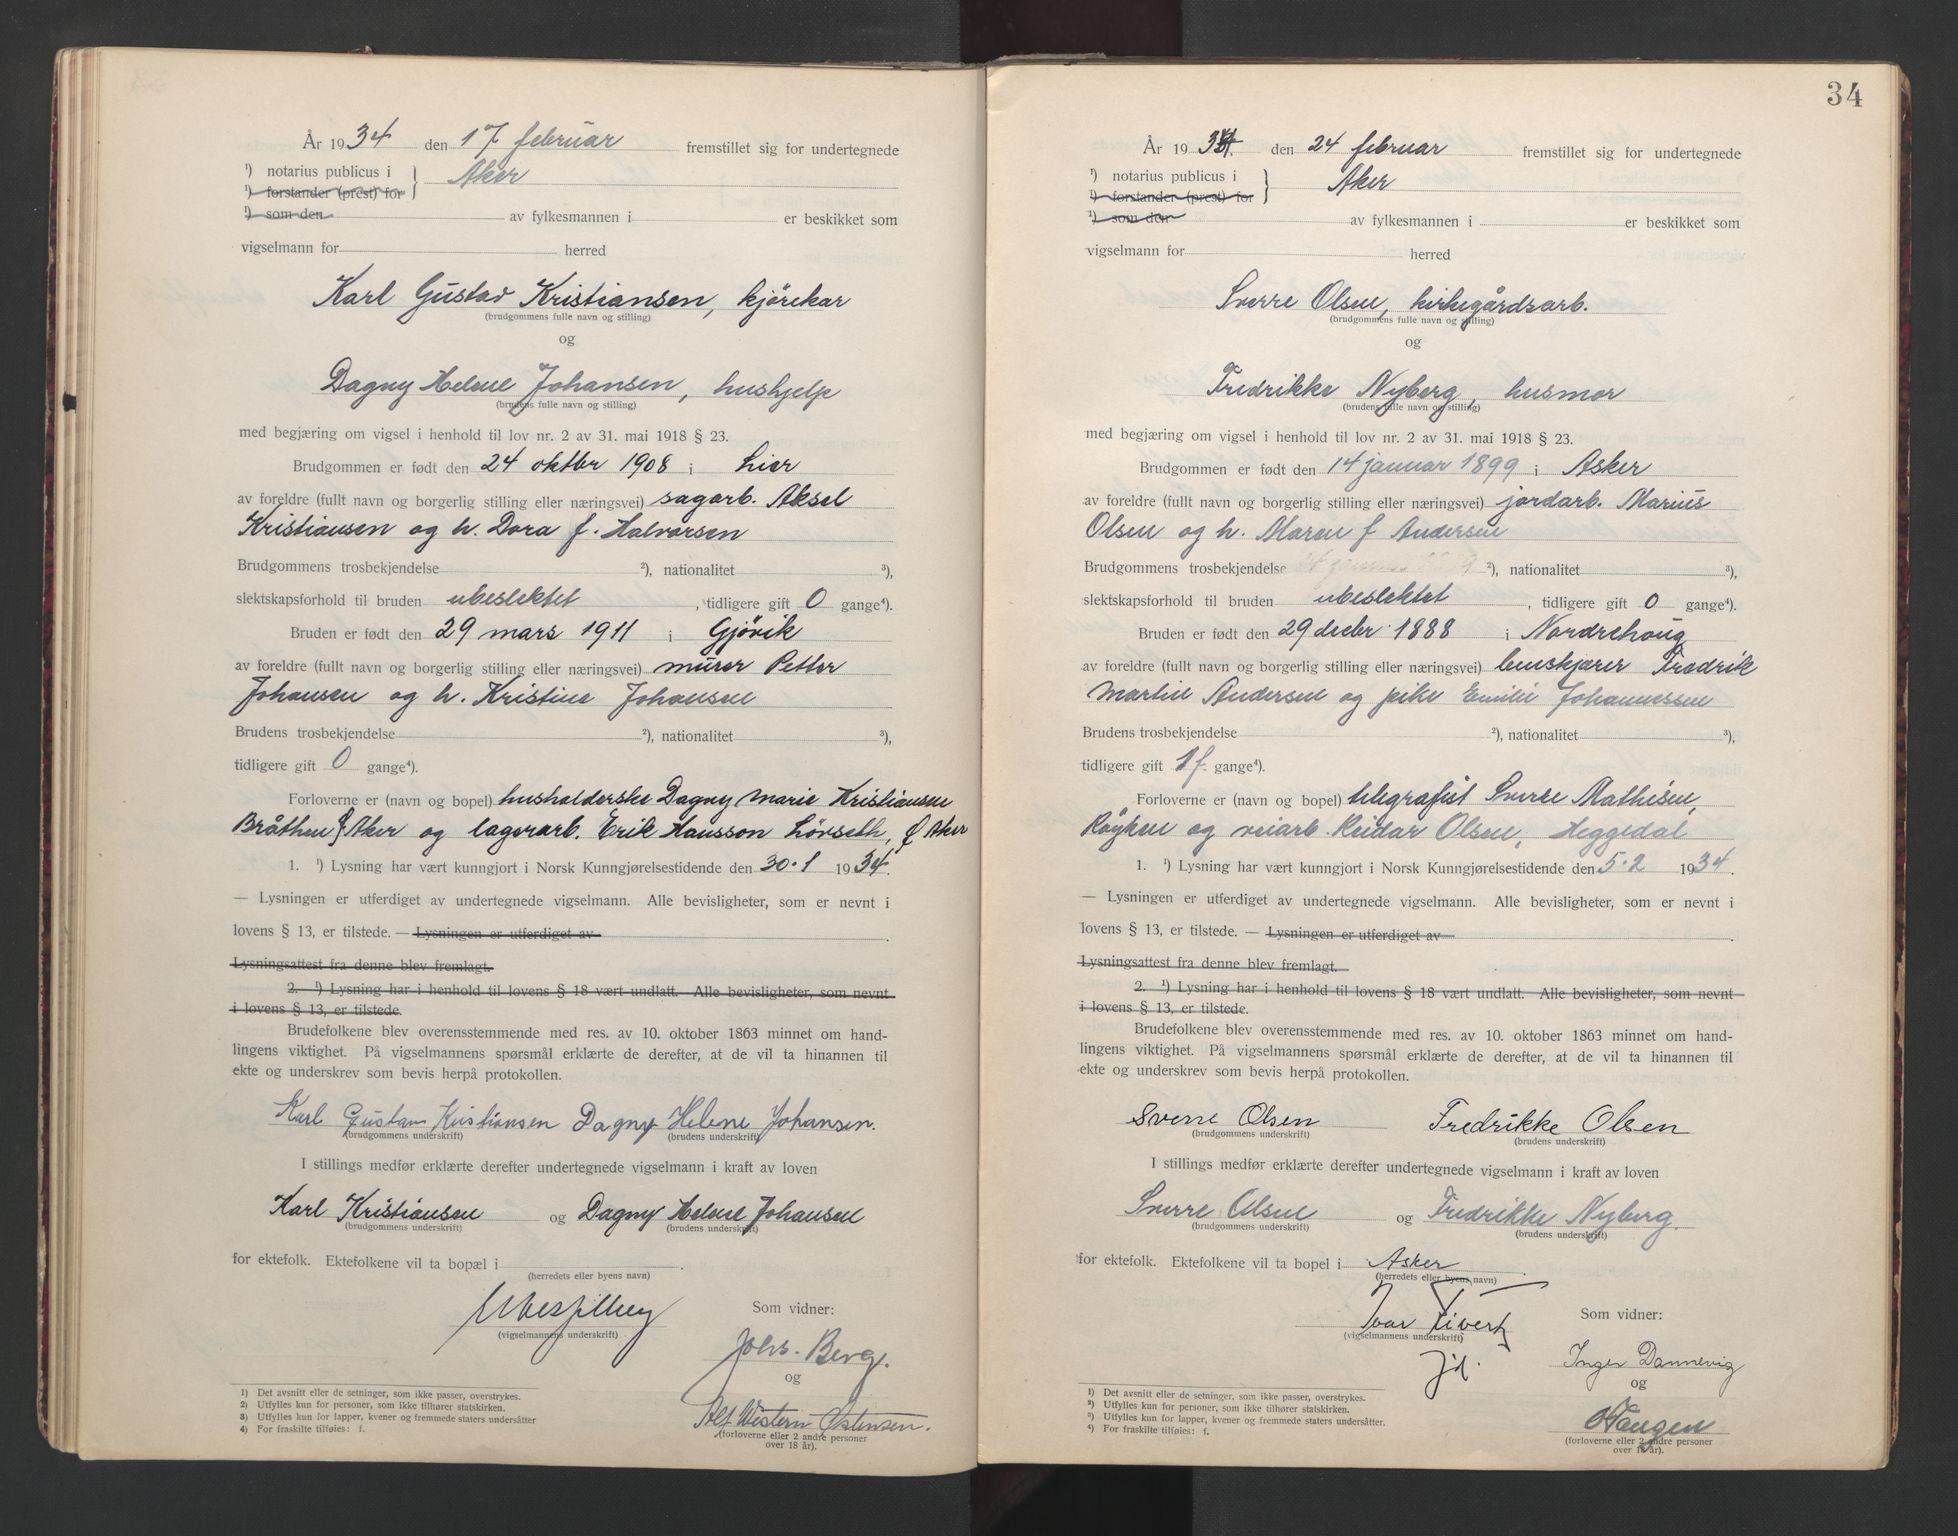 År 1934 den 17 februar fremstillet sig for undertegnede
¹) notarius publicus i } Aker
¹) forstander (prest) for
¹) som den av fylkesmannen i er beskikket som
vigselmann for herred
Karl Gustav Kristiansen, kjörekar
(brudgommens fulle navn og stilling)
og
Dagny Helene Johansen, hushjelp
(brudens fulle navn og stilling)
med begjæring om vigsel i henhold til lov nr. 2 av 31. mai 1918 § 23.
Brudgommen er født den 24 oktbr 1908 i Lier
av foreldre (fullt navn og borgerlig stilling eller næringsvei) sagarb. Aksel
Kristiansen og h. Dora f. Halvorsen
Brudgommens trosbekjendelse ²), nationalitet ³),
slektskapsforhold til bruden ubeslektet, tidligere gift 0 gange⁴).
Bruden er født den 29 mars 1911 i Gjövik
av foreldre (fullt navn og borgerlig stilling eller næringsvei) murer Petter
Johansen og h. Kristine Johansen
Brudens trosbekjendelse ²), nationalitet ³),
tidligere gift 0 gange⁴).
Forloverne er (navn og bopel) husholderske Dagny Marie Kristiansen
Bråthen, Aker og lagerarb. Erik Hansson Lövseth, Ø Aker
1. ¹) Lysning har vært kunngjort i Norsk Kunngjørelsestidende den 30.1 1934.
— Lysningen er utferdiget av undertegnede vigselmann. Alle bevisligheter, som er nevnt i
lovens § 13, er tilstede. — Lysningen er utferdiget av
Lysningsattest fra denne blev fremlagt.
2. ¹) Lysning har i henhold til lovens § 18 vært undlatt. Alle bevisligheter, som nevnt
i lovens § 13, er tilstede.
Brudefolkene blev overensstemmende med res. av 10. oktober 1863 minnet om hand-
lingens viktighet. På vigselmannens spørsmål erklærte de derefter, at de vil ta hinannen til
ekte og underskrev som bevis herpå protokollen.
Karl Gustav Kristiansen Dagny Helene Johansen.
(brudgommens underskrift) (brudens underskrift)
I stillings medfør erklærte derefter undertegnede vigselmann i kraft av loven
Karl Kristiansen og Dagny Helene Johansen
(brudgommens underskrift) (brudens underskrift)
for ektefolk. Ektefolkene vil ta bopæl i
(herredets eller byens navn)
Som vidner:
(vigselmannens underskrift)
Johs. Berg.
og
Alf Western Østensen.
(forloverne eller 2 andre personer
over 18 år).
¹) Det avsnitt eller de setninger, som ikke passer, overstrykes.
²) Utfylles kun for personer, som ikke tilhører statskirken.
³) Utfylles kun for lapper, kvener og fremmede staters undersåtter
⁴) For fraskilte tilføies: f.
34
År 1934. den 24 februar fremstillet sig for undertegnede
¹) notarius publicus i } Aker
¹) forstander (prest) for
¹) som den av fylkesmannen i er beskikket som
vigselmann for herred
Sverre Olsen, kirkegårdsarb.
(brudgommens fulle navn og stilling)
og
Fredrikke Nyberg, husmor
(brudens fulle navn og stilling)
med begjæring om vigsel i henhold til lov nr. 2 av 31. mai 1918 § 23.
Brudgommen er født den 14 januar 1899 i Asker
av foreldre (fullt navn og borgerlig stilling eller næringsvei) jordarb. Marius
Olsen og h. Maren f Andersen
Brudgommens trosbekjendelse ²), nationalitet ³),
slektskapsforhold til bruden ubeslektet, tidligere gift 0 gange⁴).
Bruden er født den 29 decbr. 1888 i Nordrehoug
av foreldre (fullt navn og borgerlig stilling eller næringsvei) Fredrik
Martin Andersen og pike Emilie Johannessen
Brudens trosbekjendelse ²), nationalitet ³),
tidligere gift 1 f. gange⁴).
Forloverne er (navn og bopel) telegrafist Sverre Mathisen,
Röyken og veiarb. Reidar Olsen, Heggedal
1. ¹) Lysning har vært kunngjort i Norsk Kunngjørelsestidende den 5.2 1934.
— Lysningen er utferdiget av undertegnede vigselmann. Alle bevisligheter, som er nevnt i
lovens § 13, er tilstede. — Lysningen er utferdiget av
Lysningsattest fra denne blev fremlagt.
2. ¹) Lysning har i henhold til lovens § 18 vært undlatt. Alle bevisligheter, som nevnt
i lovens § 13, er tilstede.
Brudefolkene blev overensstemmende med res. av 10. oktober 1863 minnet om hand-
lingens viktighet. På vigselmannens spørsmål erklærte de derefter, at de vil ta hinannen til
ekte og underskrev som bevis herpå protokollen.
Sverre Olsen Fredrikke Olsen
(brudgommens underskrift) (brudens underskrift)
I stillings medfør erklærte derefter undertegnede vigselmann i kraft av loven
Sverre Olsen og Fredrikke Nyberg.
(brudgommens underskrift) (brudens underskrift)
for ektefolk. Ektefolkene vil ta bopel i Asker
(herredets eller byens navn)
Ivar Sivertz Som vidner:
(vigselmannens underskrift)
Inger Dannevig
og
(forloverne eller 2 andre personer
over 18 år).
¹) Det avsnitt eller de setninger, som ikke passer, overstrykes.
²) Utfylles kun for personer, som ikke tilhører statskirken.
³) Utfylles kun for lapper, kvener og fremmede staters undersåtter.
⁴) For fraskilte tilføies: f.